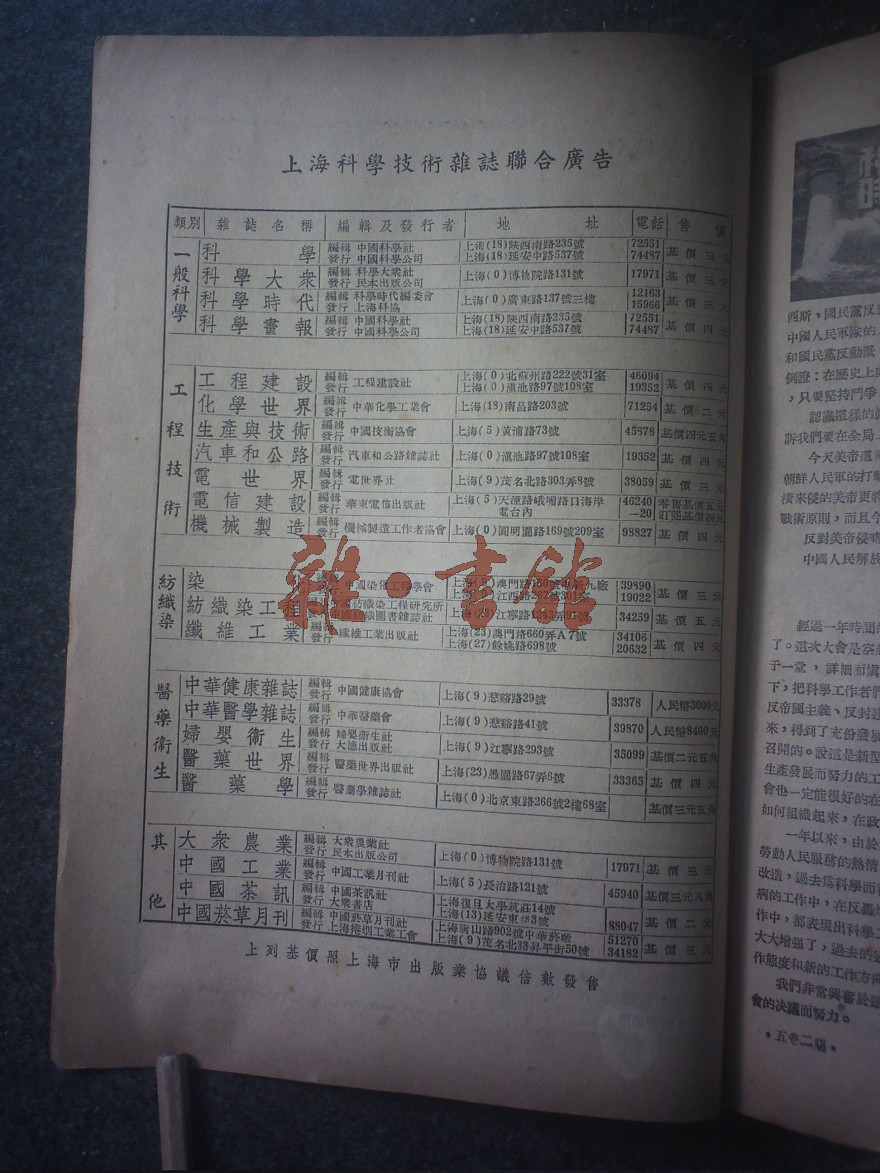 上海科學技術雜誌聯合廣告
類別 雜誌名稱 編輯及發行者 地址 電話 售價
一般科學
科學 編輯 中國科學社 發行 中國科學公司 上海(18)陝西南路235號 上海(18)延安中路537號 72551 74487 基價三元
科學大衆 編輯 科學大衆社 發行 民本出版公司 上海(0)博物院路131號 17971 基價三元
科學時代 編輯 科學時代編委會 發行 上海科協 上海(0)廣東路137號三樓 12163 15966 基價三元
科學畫報 編輯 中國科學社 發行 中國科學公司 上海(18)陝西南路235號 上海(18)延安中路537號 72551 74487 基價四元
工程技術
工程建設 編輯 發行 工程建設社 上海(0)北蘇州路222號31室 上海(0)滇池路97號108室 46094 19352 基價四元
化學世界 編輯 發行 中華化學工業會 上海(18)南昌路203號 71254 基價二元
生產與技術 編輯 發行 中國技術協會 上海(5)黃浦路73號 45878 基價四元五角
汽車和公路 編輯 發行 汽車和公路雜誌社 上海(0)滇池路97號108室 19352 基價四元
電世界 編輯 發行 電世界社 上海(9)茂名北路303弄8號 38059 基價三元
電信建設 編輯 發行 華東電信出版社 上海(5)天潼路峨嵋路口海岸電台內 46240—20 零售基價五元 訂閱基價四元
機械製造 編輯 發行 機械製造工作者協會 上海(0)圓明園路169號209室 98827 基價四元
紡織染
染 中國染化工程學會 上海(9)澳門路 上海(0)江西路267號301室 39890 19022 基價三元
紡織染工程 紡織染工程研究所 中國紡織圖書雜誌社 江寧路1243弄 34259 基價五元
纖維工業 纖維工業出版社 上海(23)澳門路660弄A7號 上海(27)餘姚路698號 34106 20632 基價四元
醫藥衛生
中華健康雜誌 編輯 發行 中國健康協會 上海(9)慈谿路29號 33378 人民幣3000元
中華醫學雜誌 編輯 發行 中華醫藥會 上海(9)慈谿路41號 39870 人民幣8400元
婦嬰衛生 編輯 婦嬰衛生社 發行 大德出版社 上海(9)江寧路293號 35099 基價二元五角
醫藥世界 編輯 發行 醫藥世界出版社 上海(23)愚園路67弄6號 33365 基價四元
醫藥學 編輯 發行 醫藥學雜誌社 上海(0)北京東路266號2樓68室 基價三元五角
其他
大衆農業 編輯 大衆農業社 發行 民本出版公司 上海(0)博物院路131號 17971 基價三元
中國工業 編輯 發行 中國工業月刊社 上海(5)長治路121號 45940 基價三元八角
中國茶訊 編輯 中國茶訊社 發行 大衆書店 上海復旦大學筑莊14號 上海(13)延安東路83號 88047 基價二元
中國菸草月刊 編輯 中國菸草月刊社 發行 上海捲烟工業工會 上海唐山路902號中華菸廠 上海(9)茂名北路昇平街50號 51270 34182 基價三元
上列基價照上海市出版業協議倍數發售
雜·書館
西斯、國民黨反
中國人民軍隊的
和國民黨反動派
例證：在歷史上
，只要堅持鬥爭
認識這樣的
訴我們要在全局
今天美帝還
朝鮮人民軍的打
橫來侵的美帝更
戰術原則，而且今
反對美帝侵略
中國人民解放
經過一年時間的
了。這次大會是空
子一堂，詳細而慎
下，把科學工作者們
反帝國主義、反封建
來，得到了充份發展
召開的。說這是新型
生產發展而努力的工
會也一定能很好的在
如何組織起來，在政
一年以來，由於
勞動人民服務的熱情
改造，過去為科學而
病的工作中，在反轟炸
作中，都表現出科學工
大大增强了，過去的
作態度和新的工作方向
我們非常興奮於這
會的決議而努力。
·五卷二期·